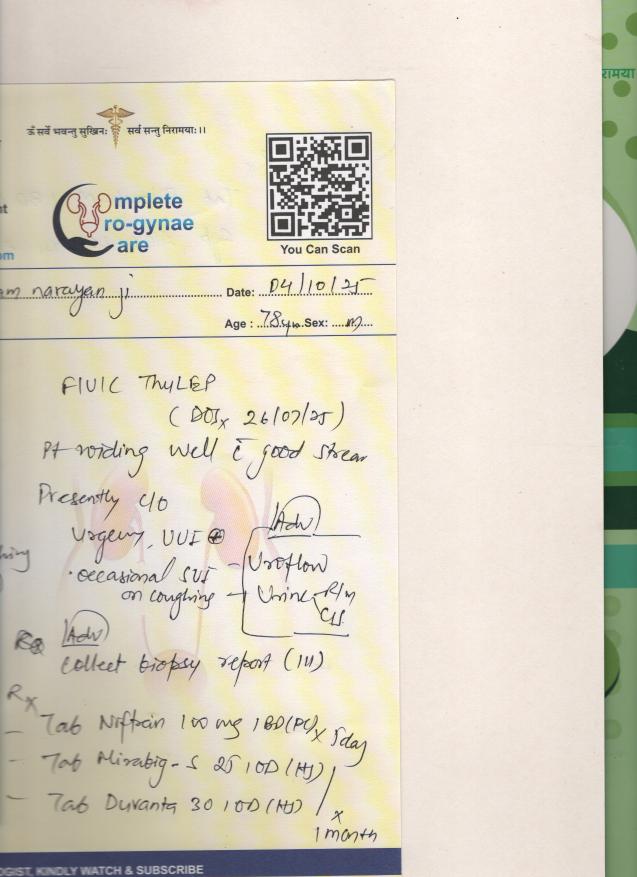 ॐ सर्वे भवन्तु सुखिनः सर्व सन्तु निरामयाः।।
रामया
nt
mplete
ro-gynae
are
om
You Can Scan
am narayan ji Date: 04/10/25
Age : 78yrs Sex: m
F/U/C ThuLEP
(DOSx 26/07/25)
Pt voiding well c̄ good stream
Presently c/o
Urgency, UUI ⊕
Adv
• occasional SUI
on coughing
- Uroflow
- Urine R/m
C/S
Adv
collect biopsy report
Rx
- Tab Niftran 100 mg 1 BD (PC) x 5day
- Tab Mirabig-S 25 1 OD (HS)
- Tab Duvanta 30 1 OD (HS)
x
1 month
OGIST, KINDLY WATCH & SUBSCRIBE